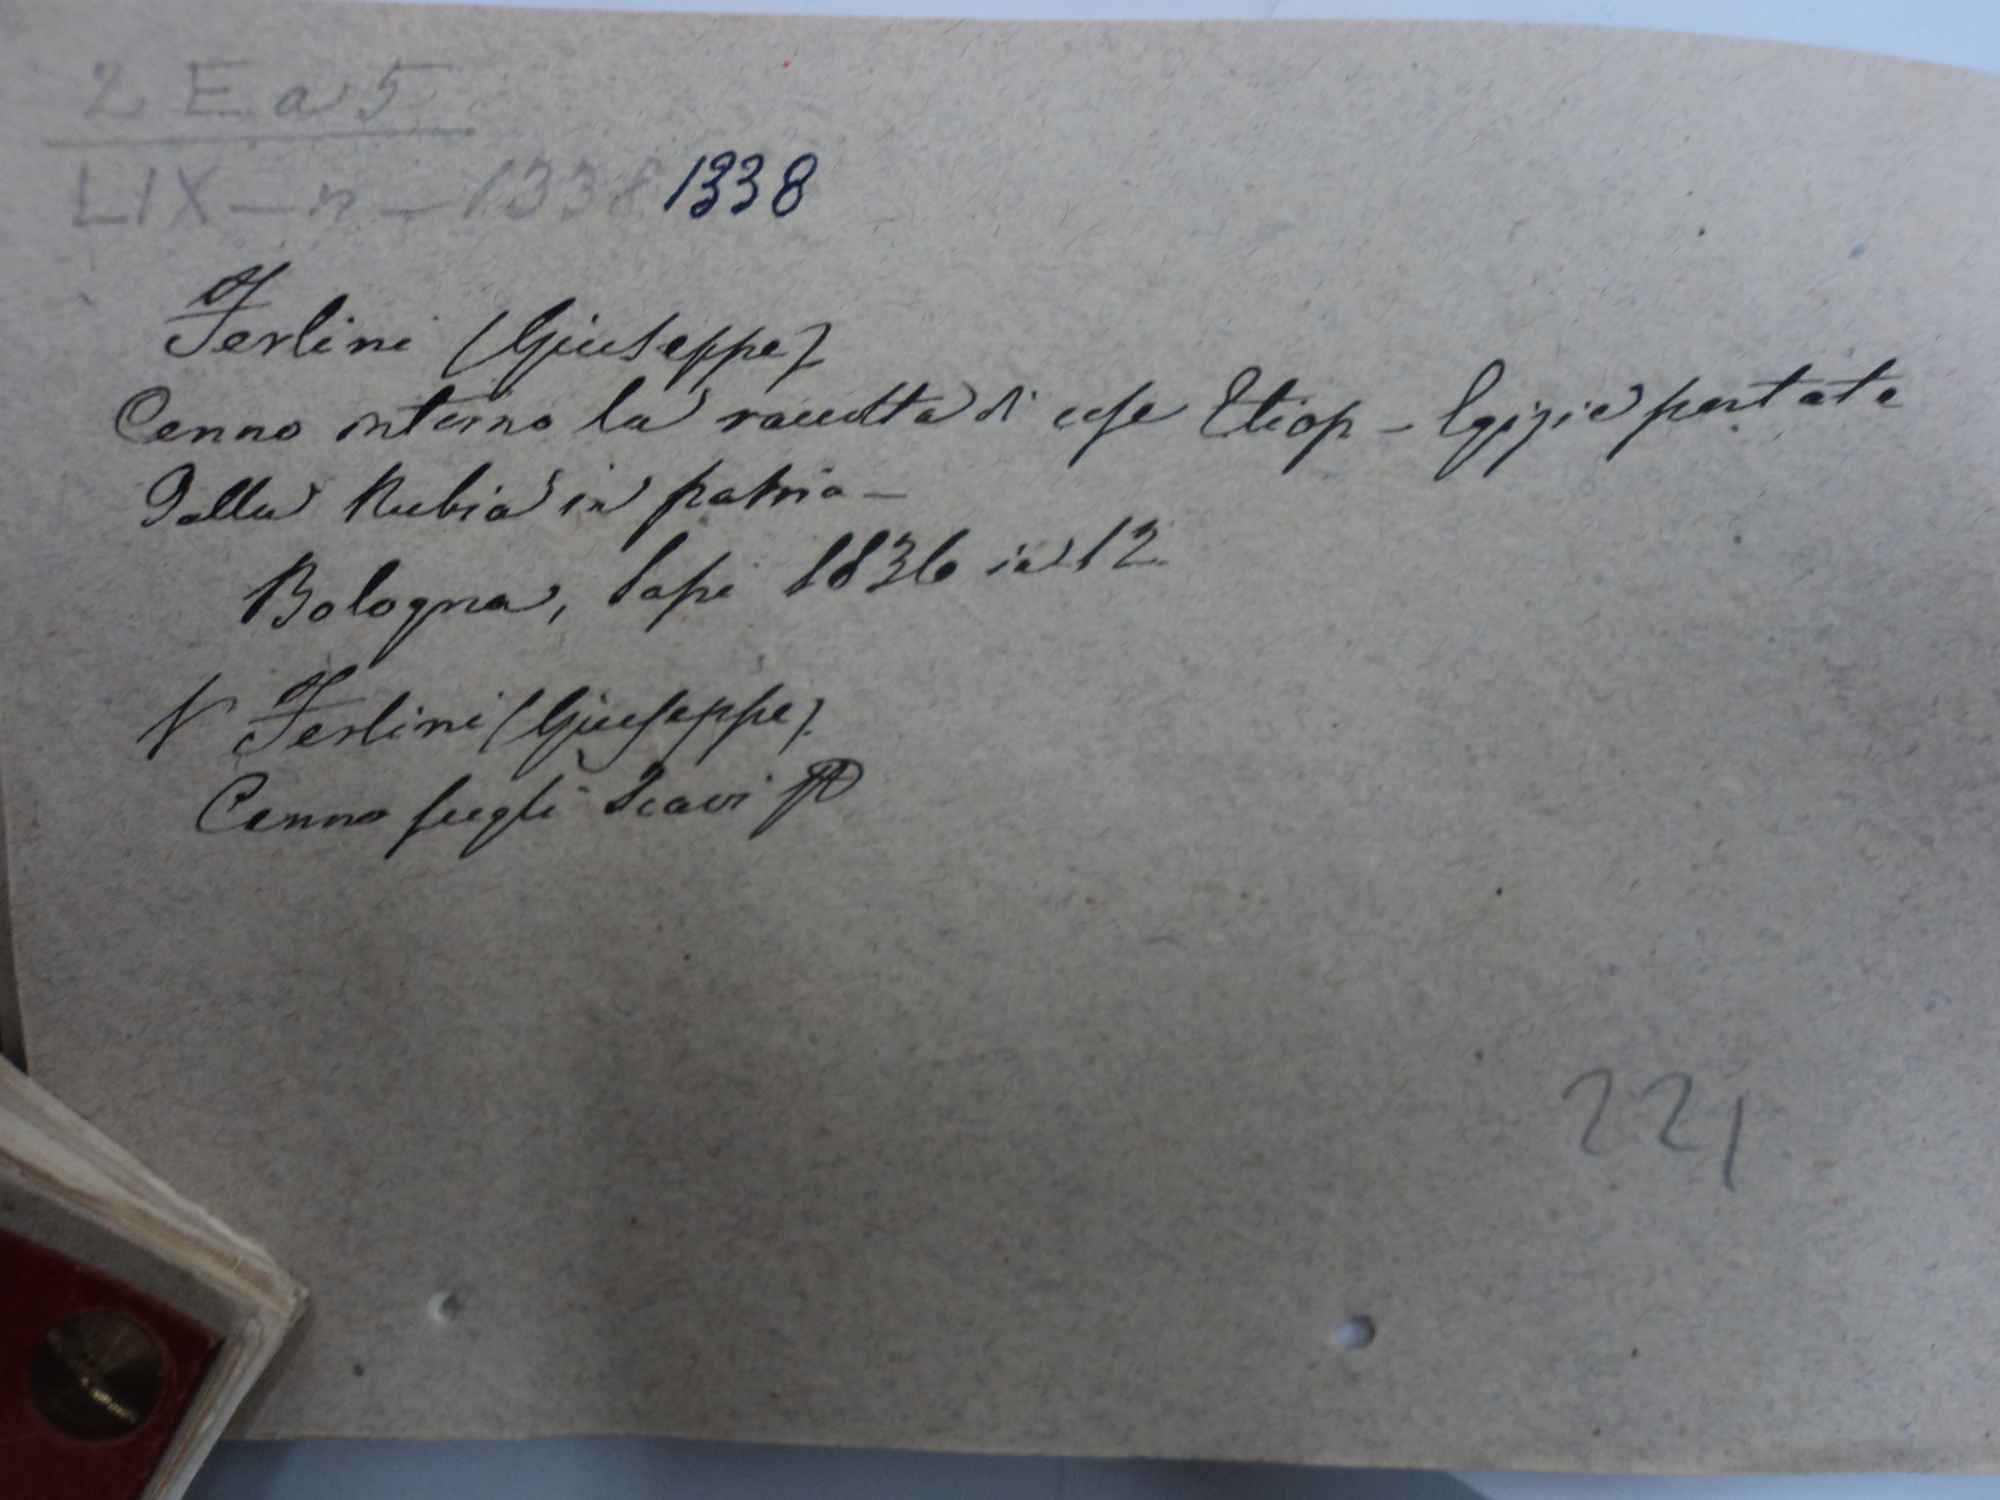 2 E a 5
LIX - n - 1338 1338
Ferlini (Giuseppe)
Cenno intorno la raccolta di cose Etiop - Egizie portate
Dalla Nubia in patria -
Bologna, Sapi 1836 in 12
V Ferlini (Giuseppe).
Cenno sugli Scavi
221